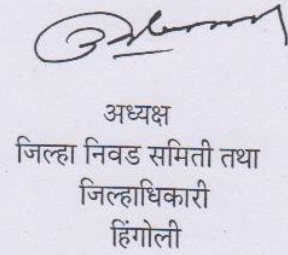 अध्यक्ष
जिल्हा निवड समिती तथा
जिल्हाधिकारी
हिंगोली